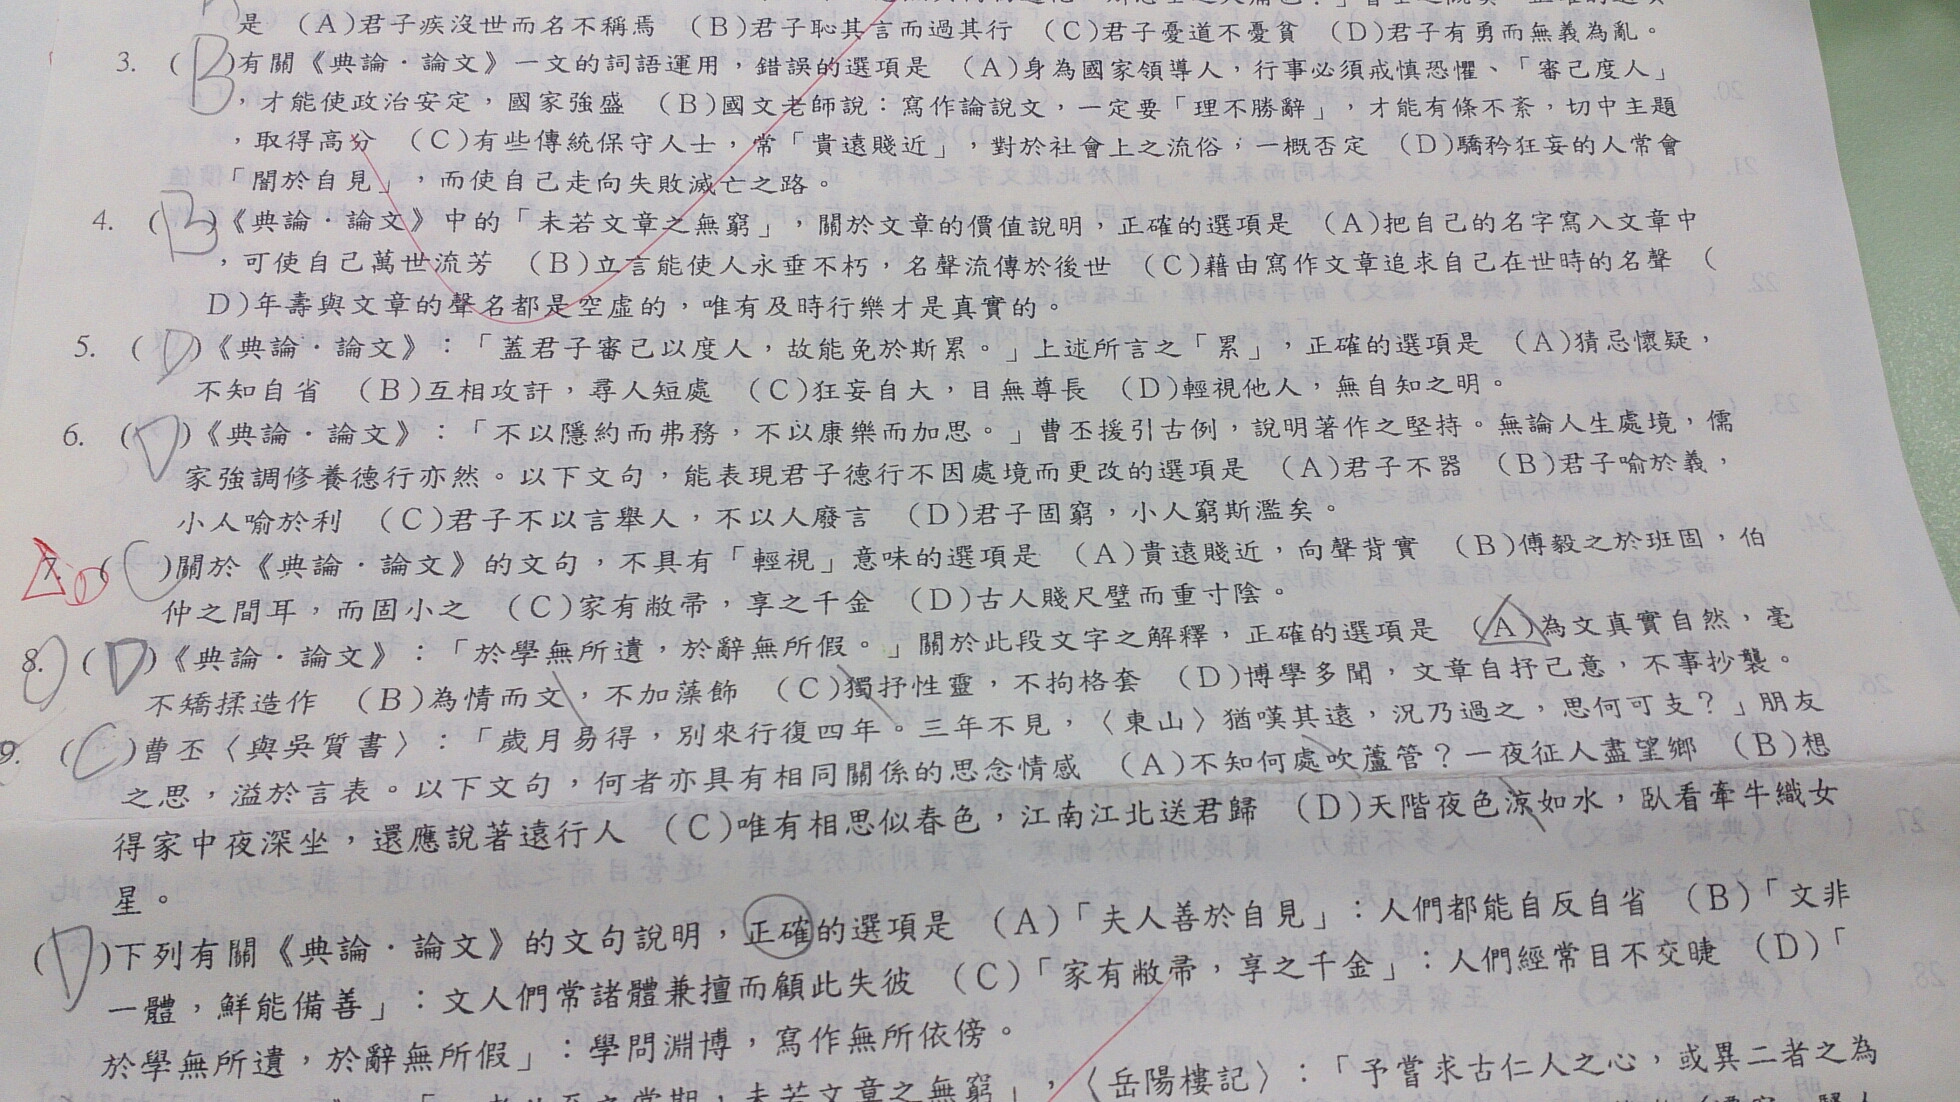 是 (A)君子疾沒世而名不稱焉 (B)君子恥其言而過其行 (C)君子憂道不憂貧 (D)君子有勇而無義為亂。
3. (B)有關《典論·論文》一文的詞語運用，錯誤的選項是 (A)身為國家領導人，行事必須戒慎恐懼、「審己度人」
，才能使政治安定，國家強盛 (B)國文老師說：寫作論說文，一定要「理不勝辭」，才能有條不紊，切中主題
，取得高分 (C)有些傳統保守人士，常「貴遠賤近」，對於社會上之流俗，一概否定 (D)驕矜狂妄的人常會
「闇於自見」，而使自己走向失敗滅亡之路。
4. (B)《典論·論文》中的「未若文章之無窮」，關於文章的價值說明，正確的選項是 (A)把自己的名字寫入文章中
，可使自己萬世流芳 (B)立言能使人永垂不朽，名聲流傳於後世 (C)藉由寫作文章追求自己在世時的名聲 (
D)年壽與文章的聲名都是空虛的，唯有及時行樂才是真實的。
5. (D)《典論·論文》：「蓋君子審己以度人，故能免於斯累。」上述所言之「累」，正確的選項是 (A)猜忌懷疑，
不知自省 (B)互相攻訐，尋人短處 (C)狂妄自大，目無尊長 (D)輕視他人，無自知之明。
6. (D)《典論·論文》：「不以隱約而弗務，不以康樂而加思。」曹丕援引古例，說明著作之堅持。無論人生處境，儒
家強調修養德行亦然。以下文句，能表現君子德行不因處境而更改的選項是 (A)君子不器 (B)君子喻於義，
小人喻於利 (C)君子不以言舉人，不以人廢言 (D)君子固窮，小人窮斯濫矣。
7. D (C)關於《典論·論文》的文句，不具有「輕視」意味的選項是 (A)貴遠賤近，向聲背實 (B)傅毅之於班固，伯
仲之間耳，而固小之 (C)家有敝帚，享之千金 (D)古人賤尺璧而重寸陰。
8. (D)《典論·論文》：「於學無所遺，於辭無所假。」關於此段文字之解釋，正確的選項是 (A)為文真實自然，毫
不矯揉造作 (B)為情而文，不加藻飾 (C)獨抒性靈，不拘格套 (D)博學多聞，文章自抒己意，不事抄襲。
9. (C)曹丕〈與吳質書〉：「歲月易得，別來行復四年。三年不見，〈東山〉猶嘆其遠，況乃過之，思何可支？」朋友
之思，溢於言表。以下文句，何者亦具有相同關係的思念情感 (A)不知何處吹蘆管？一夜征人盡望鄉 (B)想
得家中夜深坐，還應說著遠行人 (C)唯有相思似春色，江南江北送君歸 (D)天階夜色涼如水，臥看牽牛織女
星。
(D)下列有關《典論·論文》的文句說明，正確的選項是 (A)「夫人善於自見」：人們都能自反自省 (B)「文非
一體，鮮能備善」：文人們常諸體兼擅而顧此失彼 (C)「家有敝帚，享之千金」：人們經常目不交睫 (D)「
於學無所遺，於辭無所假」：學問淵博，寫作無所依傍。
之常期，未若文章之無窮」，〈岳陽樓記〉：「予嘗求古仁人之心，或異二者之為